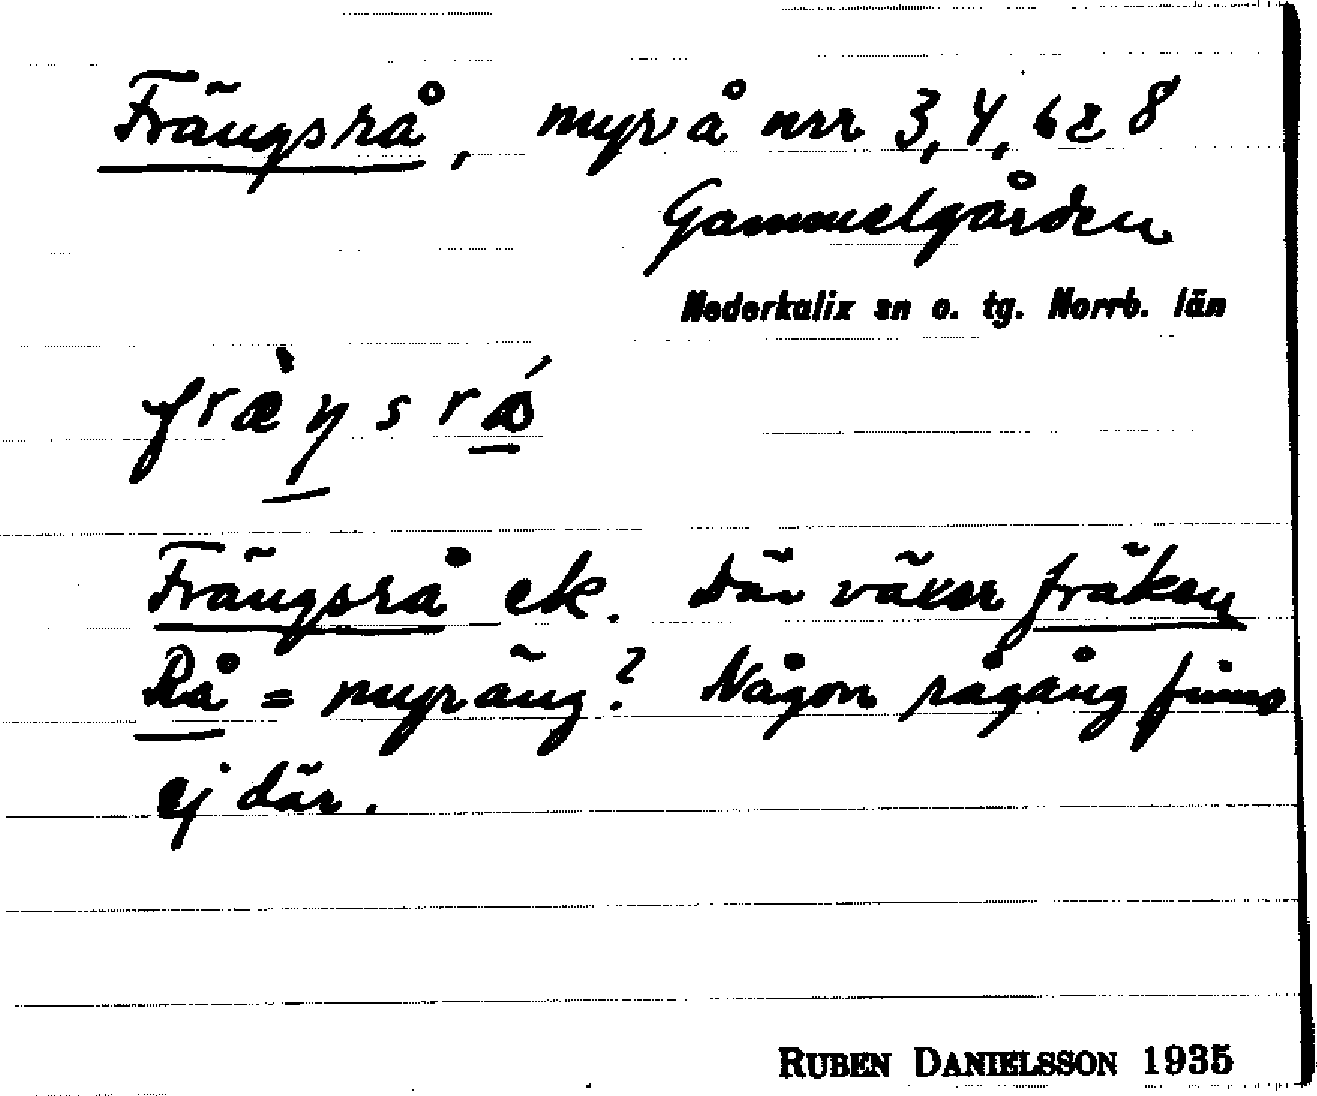 Frängsrå, myr å nrr 3, 4, 6 & 8
Gammelgården
Nederkalix sn o. tg. Norrb. län
fræŋsrå
Frängsrå ek. Där växer fräken
Rå = myräng? Någon rågång finns
ej där.
RUBEN DANIELSSON 1935